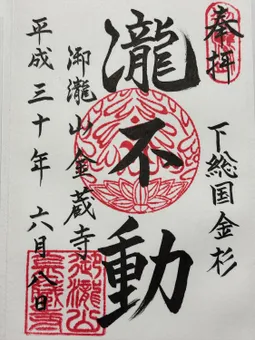 奉拝
下総国金杉
瀧不動
御瀧山金蔵寺
平成三十年六月八日
御瀧山
金蔵寺